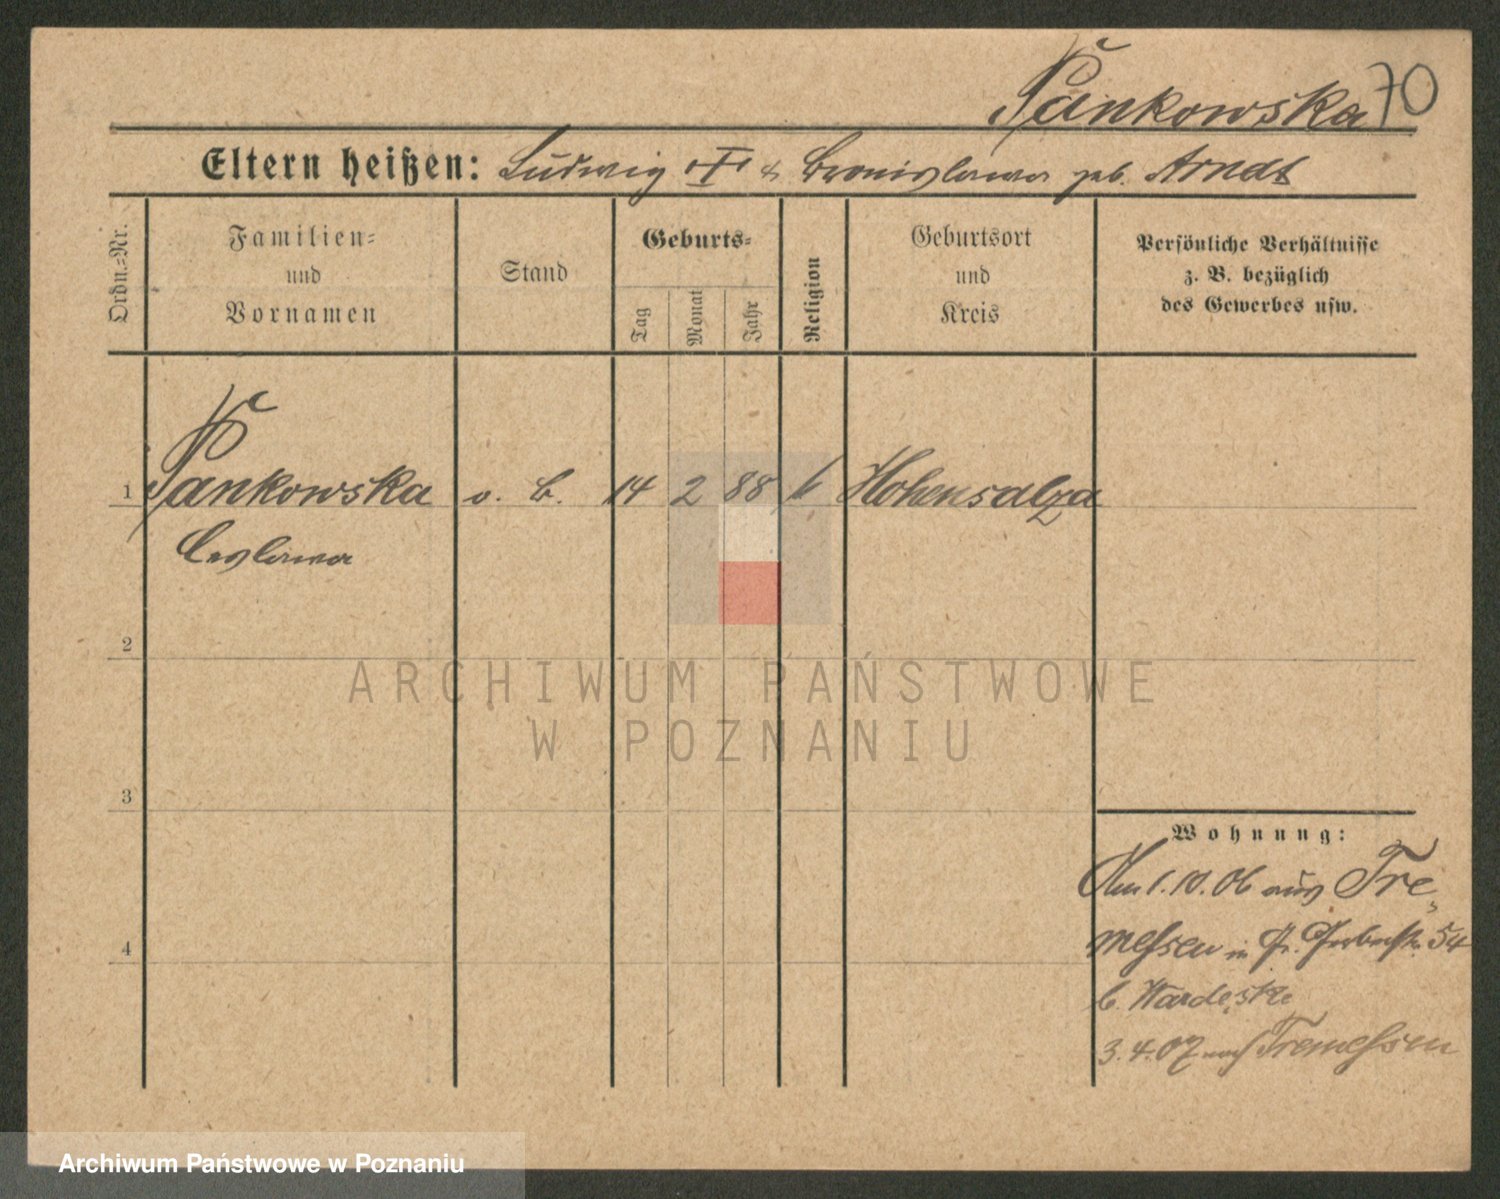 Pankowska 70
Eltern heißen: Ludwig & Bronislawa geb. Arndt
Ordn.-Nr.
Familien-
und
Vornamen
Stand
Geburts-
Tag
Monat
Jahr
Religion
Geburtsort
und
Kreis
Persönliche Verhältnisse
z. B. bezüglich
des Gewerbes usw.
1 Pankowska o. B. 14 2 88 k Hohensalza
Ceslawa
2
3
4
Wohnung:
Am 1.10.06 aus Tre-
messen in P. 54
b.
3.4.07 nach Tremessen
ARCHIWUM PAŃSTWOWE
W POZNANIU
Archiwum Państwowe w Poznaniu